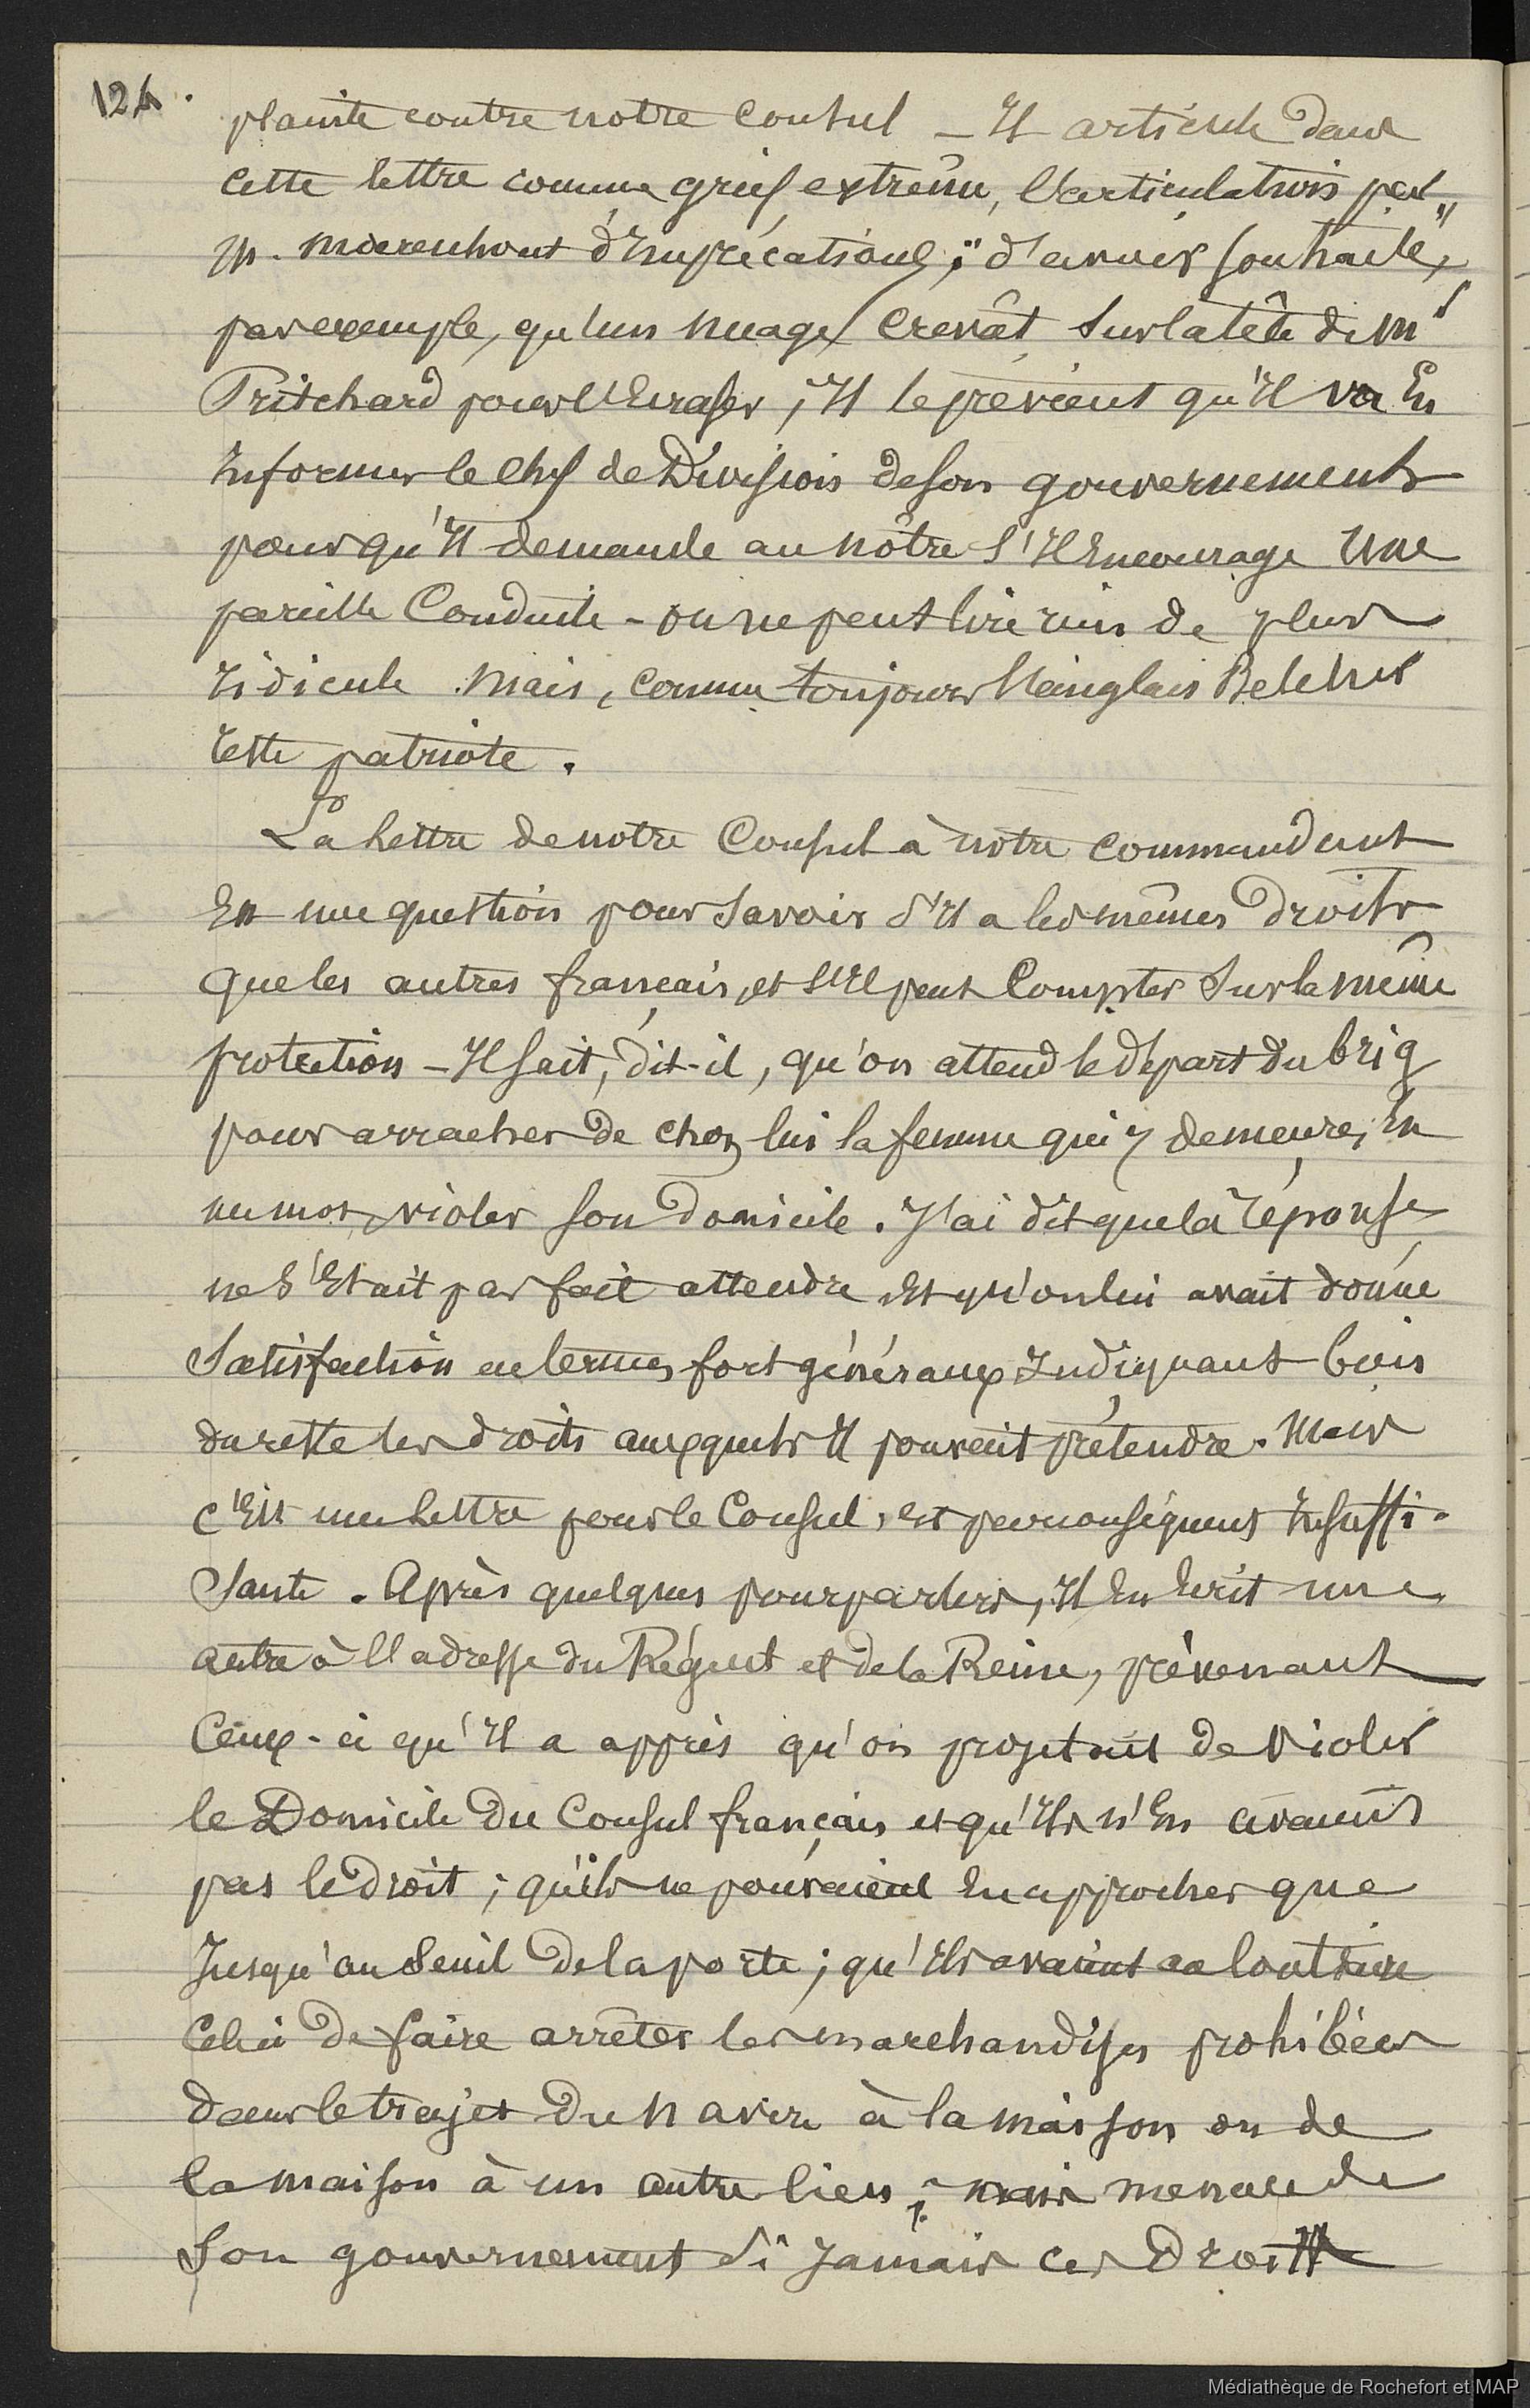 124.
plainte contre notre Consul _ Il articule dans
cette lettre comme grief extrême, l'articulation par
M. Moerenhout d'Imprécations; d'avoir souhaité,
par exemple, qu'un nuage crevât sur la tête de Mr
Pritchard pour l'Ecraser; Il le prévient qu'Il va En
Informer le chef de Division de son gouvernement
pour qu'Il demande au nôtre s'Il Encourage Une
pareille Conduite - on ne peut lire rien de plus
ridicule. Mais, comme toujours l'anglais Belcher
reste patriote.
La Lettre de notre Consul à notre commandant
Est une question pour savoir s'Il a les mêmes droits
que les autres français, et s'Il peut Compter Sur la même
protection - Il sait, dit-il, qu'on attend le départ du brig
pour arracher de chez lui la femme qui y demeure, En
un mot, violer son Domicile. J'ai dit que la réponse
ne s'Etait pas fait attendre Et qu'on lui avait donné
Satisfaction en termes fort généraux Indiquant bien
du reste les droits auxquels Il pouvait prétendre. Mais
c'Est une Lettre pour le Consul, et par conséquent Insuffi-
sante. Après quelques pourparlers, Il En Ecrit une
autre à l'adresse du Régent et de la Reine, prévenant
Ceux-ci qu'Il a appris qu'on projetait de violer
le Domicile du Consul français et qu'Ils n'En avaient
pas le droit; qu'ils ne pouvaient En approcher que
Jusqu'au Seuil de la porte; qu'Ils avaient au Contraire
Celui de faire arrêter les marchandises prohibées
dans le trajet du Navire à la maison ou de
la maison à un autre lieu; menace de
Son gouvernement si Jamais ces Droits
Médiathèque de Rochefort et MAP